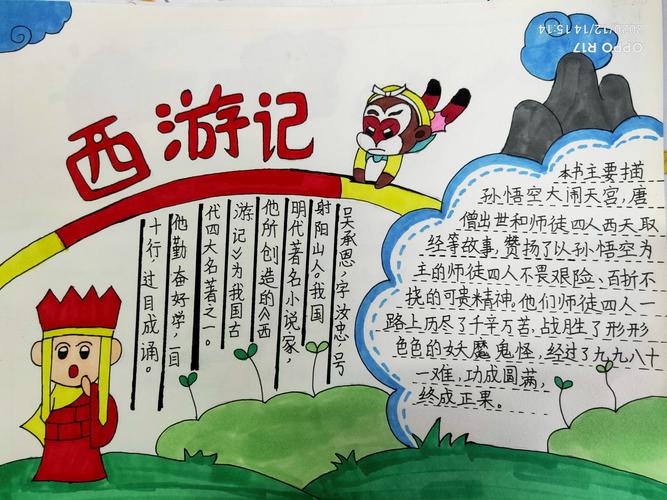 西游记
吴承恩，字汝忠，号
射阳山人。我国
明代著名小说家，
他所创造的《西
游记》为我国古
代四大名著之一。
他勤奋好学，一目
十行，过目成诵。
本书主要描
孙悟空大闹天宫，唐
僧出世和师徒四人西天取
经等故事，赞扬了以孙悟空为
主的师徒四人不畏艰险、百折不
挠的可贵精神。他们师徒四人一
路上历尽了千辛万苦，战胜了形形
色色的妖魔鬼怪，经过了九九八十
一难，功成圆满，
终成正果。
OPPO R17